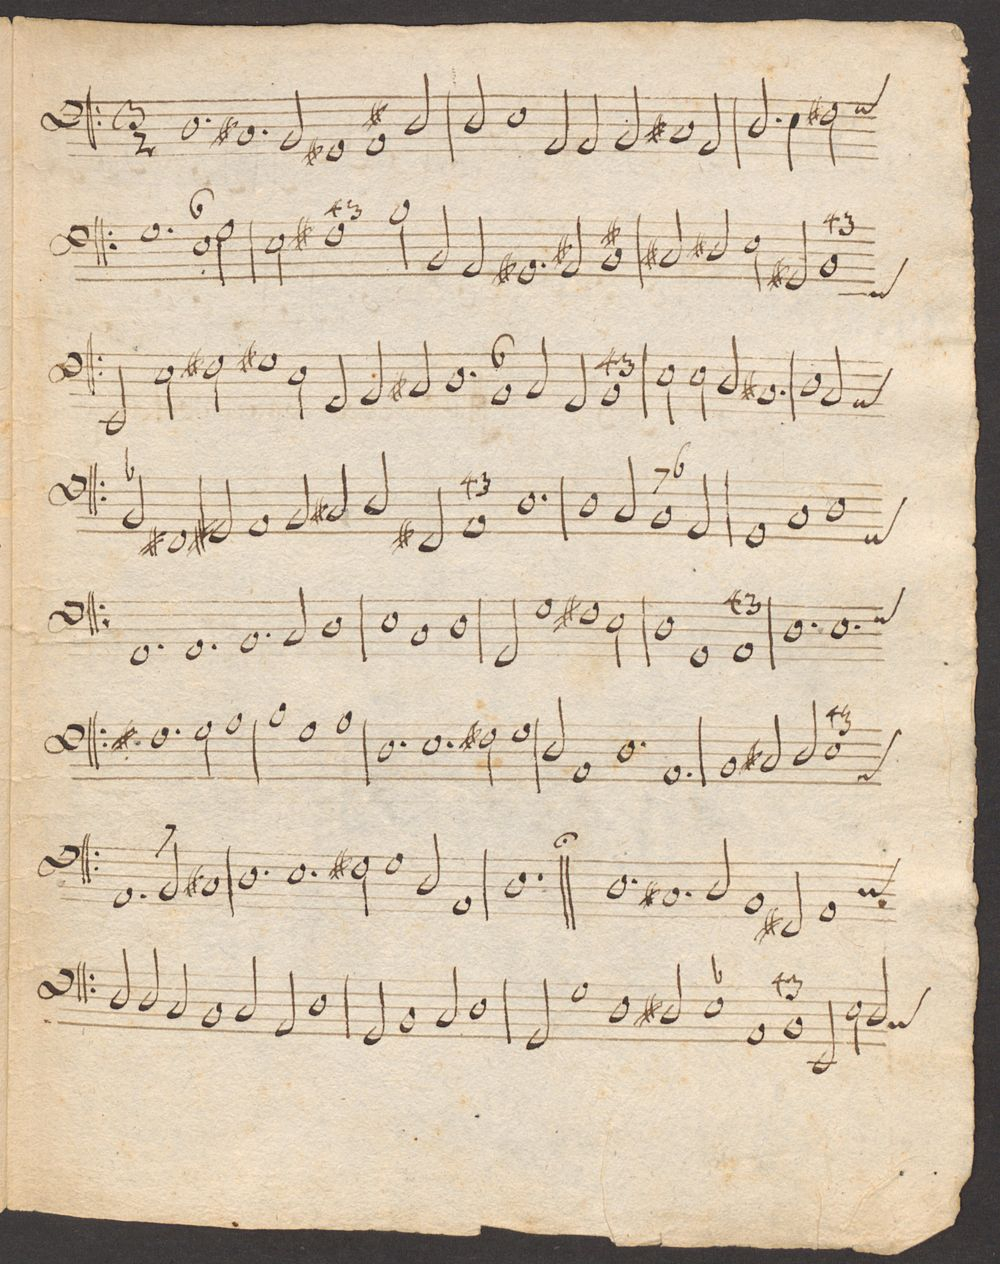 3 2
6 43 43
6 43
6 43 7 6
43
43
7
6 43